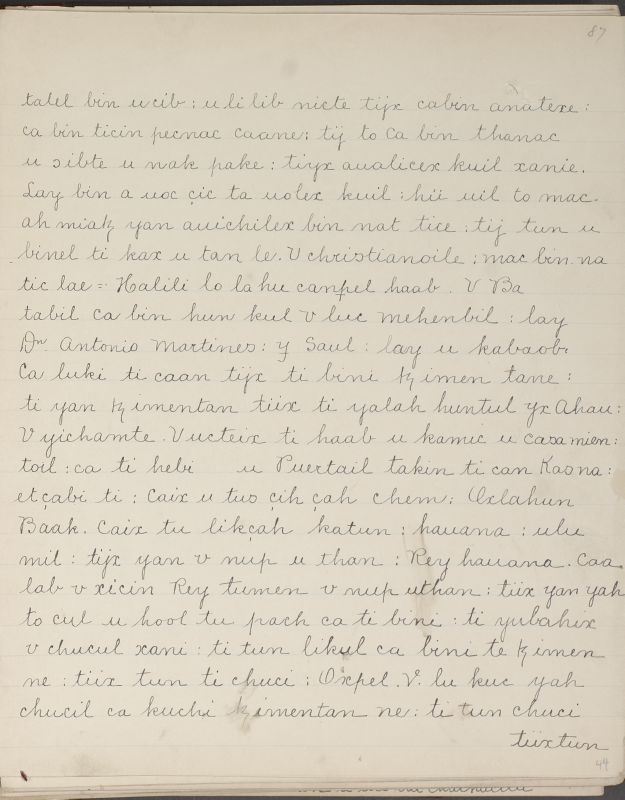 87
talel bin u cib : u li lib nicte tijx cabin anatexe :
ca bin ticin pecnac caane : tij to ca bin thanac
u ɔibte u nak pake : tiyx aualicex kuil xanie.
Lay bin a uoc çic ta uolex kuil : hii uil to mac.
ah miatz yan auichilex bin nat tice : tij tun u
binel ti kax u tan le. V christianoile : mac bin na
tic lae = Halili lo lahu canpel haab . V Ba
tabil ca bin hun kul V luc mehenbil : lay
Dn. Antonio Martines : y Saul : lay u kabaob.
Ca luki ti caan tijx ti bini tz imen tane :
ti yan tz imentan tiix ti yalah huntul yx Ahau :
V yichamte . Vucteix ti haab u kamic u casamien :
toil : ca ti hebi u Puertail takin ti can Kasna :
etçabi ti : Caix u tus çih çah chem : Oxlahun
Baak. Caix tu likçah katun : hauana : ulu
mil : tijx yan v nup u than : Rey hauana . Caa
lab v xicin Rey tumen v nup uthan : tiix yan yah
to cul u hool tu pach ca ti bini : ti yubahix
v chucul xani : ti tun likul ca bini te tz imen
ne : tiix tun ti chuci : Oxpel . V. lu kuc yah
chucil ca kuchi tz imentan ne : ti tun chuci
tiixtun
44